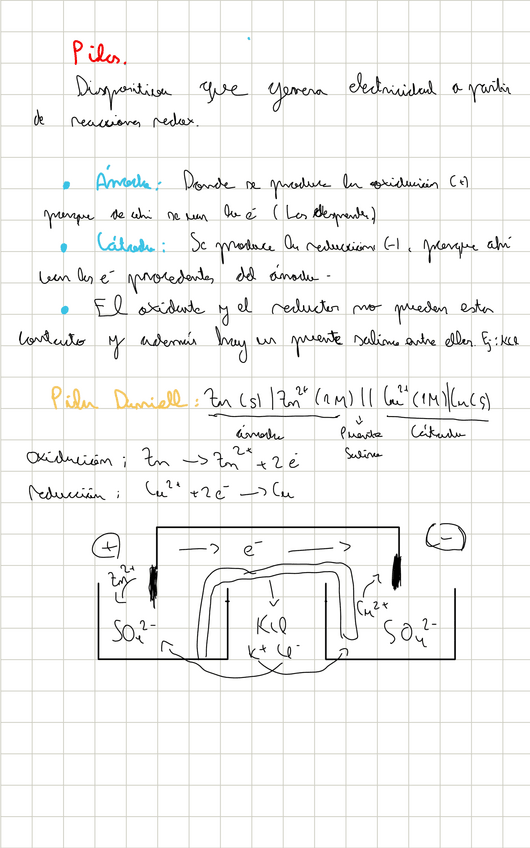 Pilas.
Dispositivo que genera electricidad a partir
de reacciones redox.
• Ánodo: Donde se produce la oxidación (+)
porque de ahí se van los e⁻ (Los desprende)
• Cátodo: Se produce la reducción (-), porque ahí
van los e⁻ procedentes del ánodo.
• El oxidante y el reductor no pueden estar
contacto y además hay un puente salino entre ellos. Ej: KCl
Pila Daniell: Zn (s) | Zn²⁺ (1M) || Cu²⁺ (1M) | Cu (s)
ánodo Puente Cátodo
Salino
Oxidación: Zn → Zn²⁺ + 2e⁻
reducción: Cu²⁺ + 2e⁻ → Cu
+ → e⁻ → -
Zn²⁺
Cu²⁺
SO₄²⁻ KCl SO₄²⁻
K+ Cl⁻